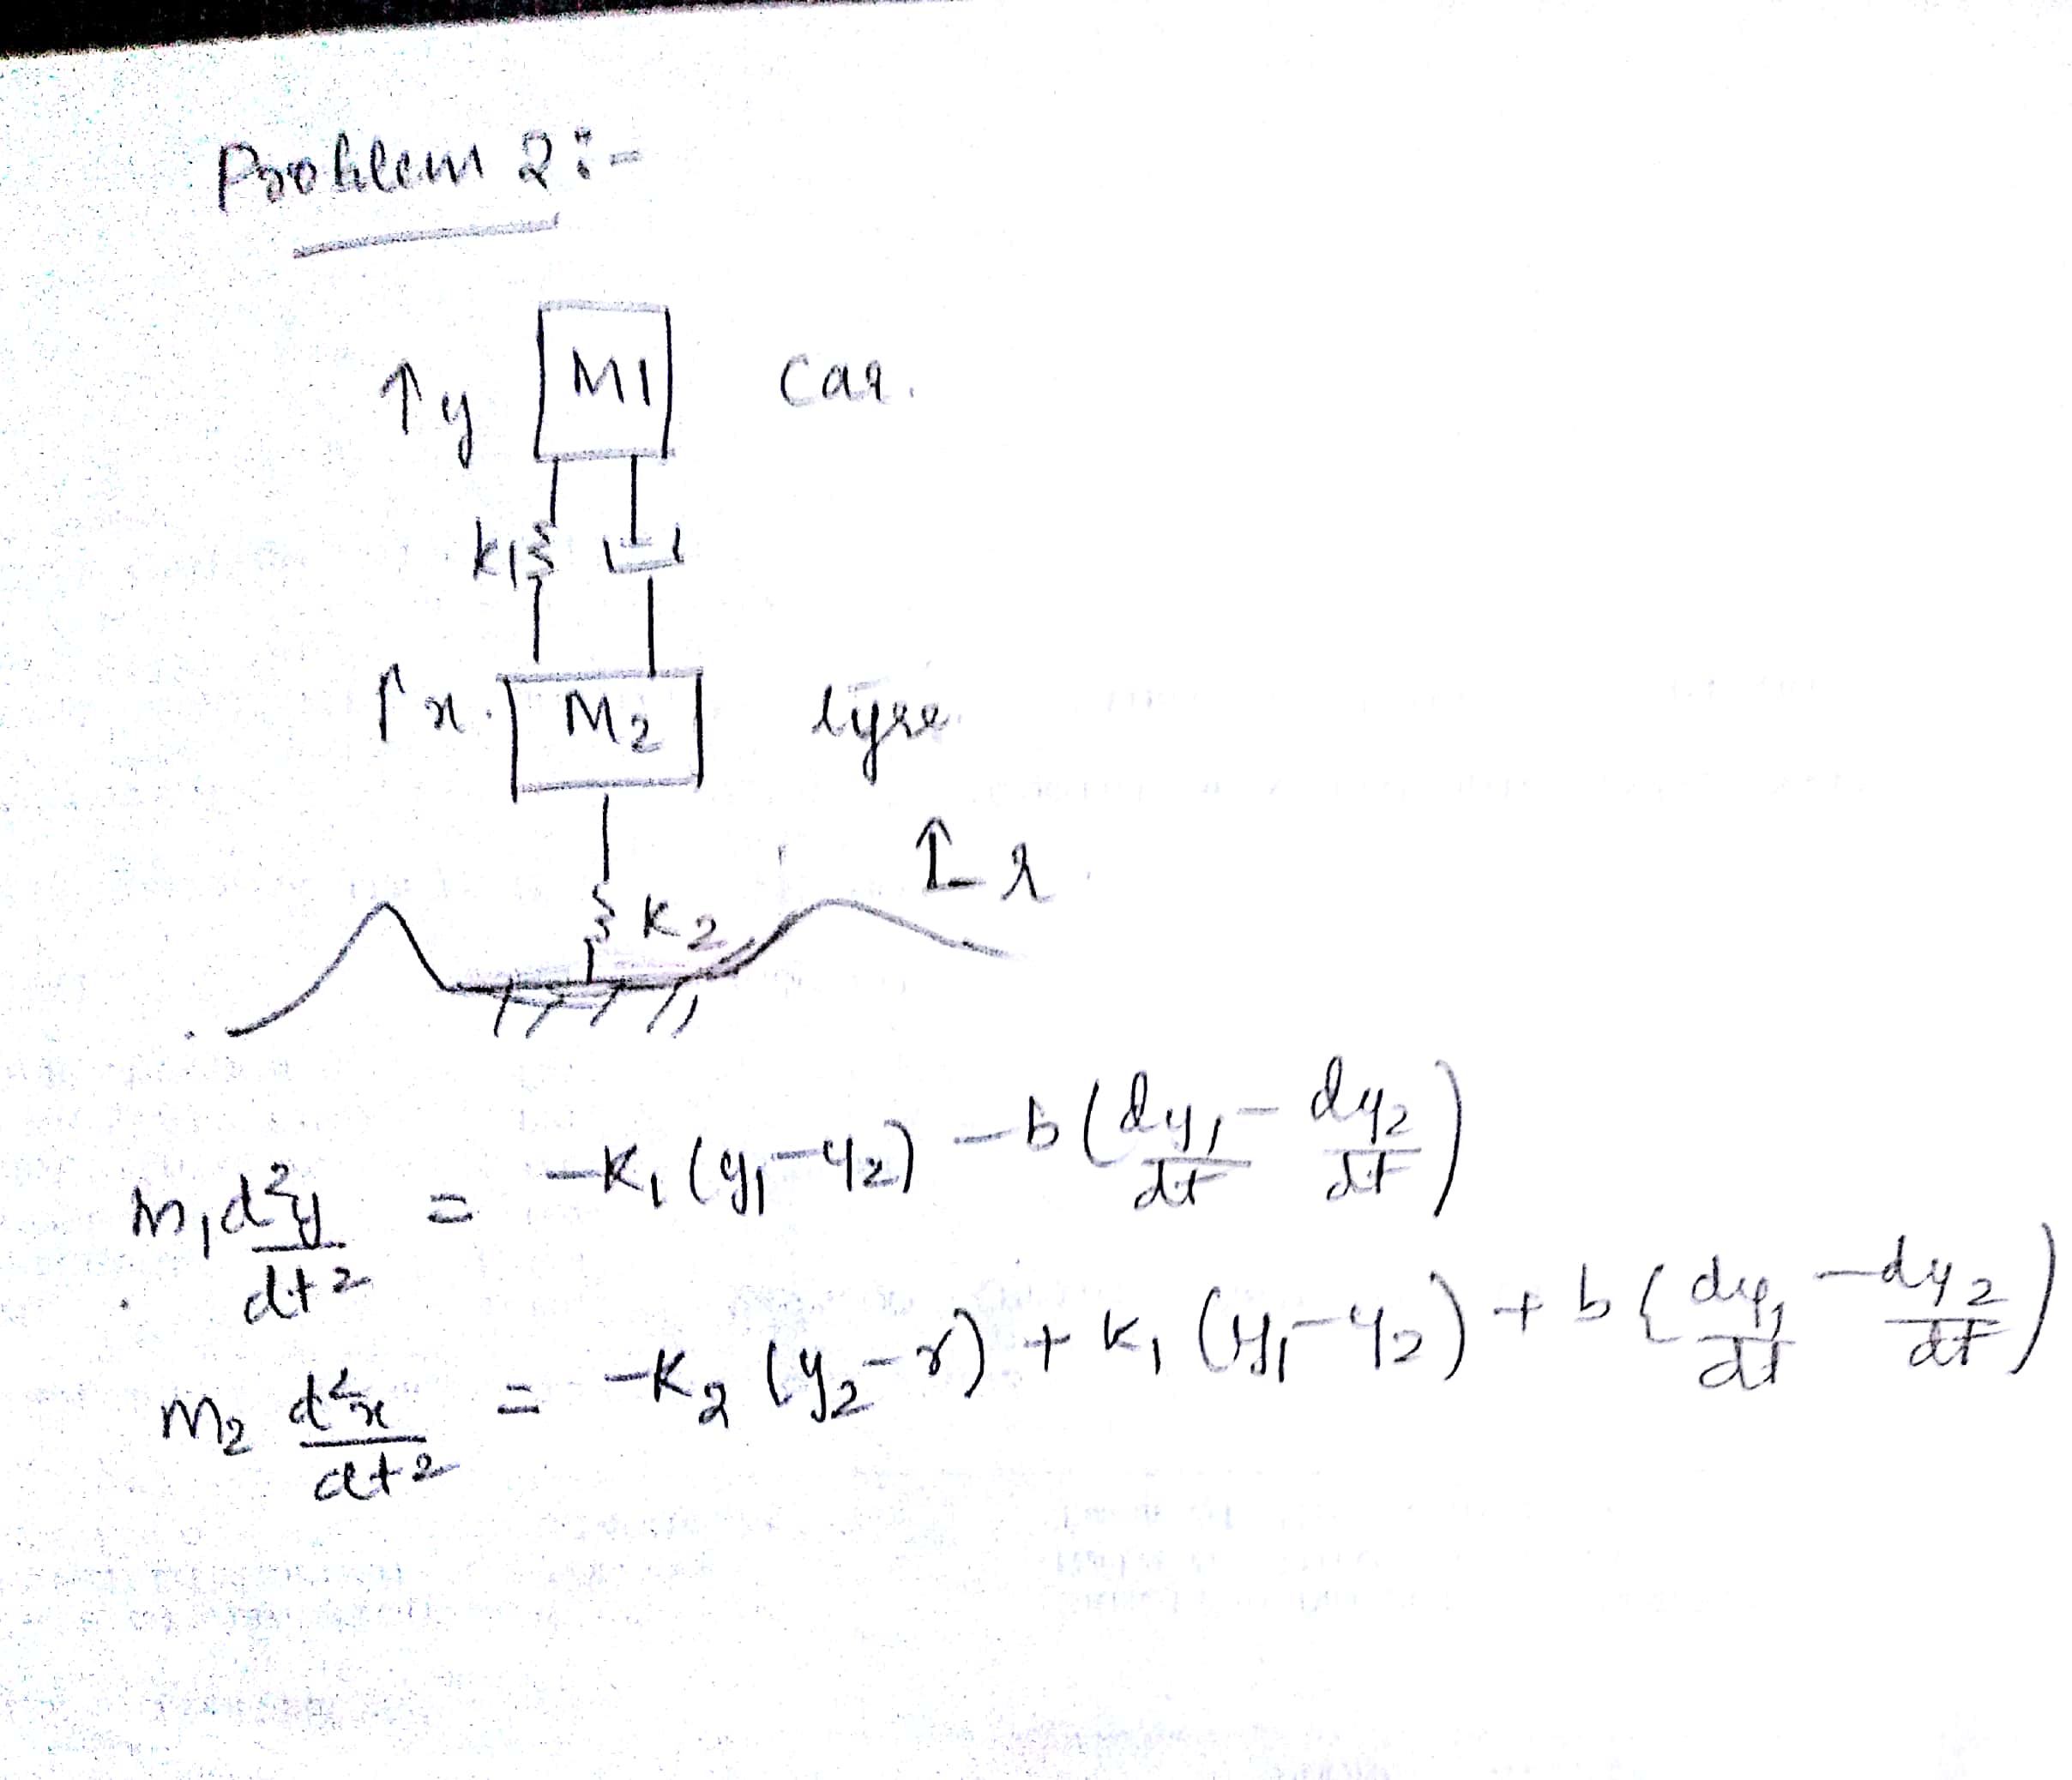 Problem 2:-
M1 Car.
↑y
k1
↑x. M2 tyre
↑ r
K2
m₁ d²y/dt² = -K₁ (y₁-y₂) - b (dy₁/dt - dy₂/dt)
m₂ d²x/dt² = -K₂ (y₂-r) + K₁ (y₁-y₂) + b (dy₁/dt - dy₂/dt)